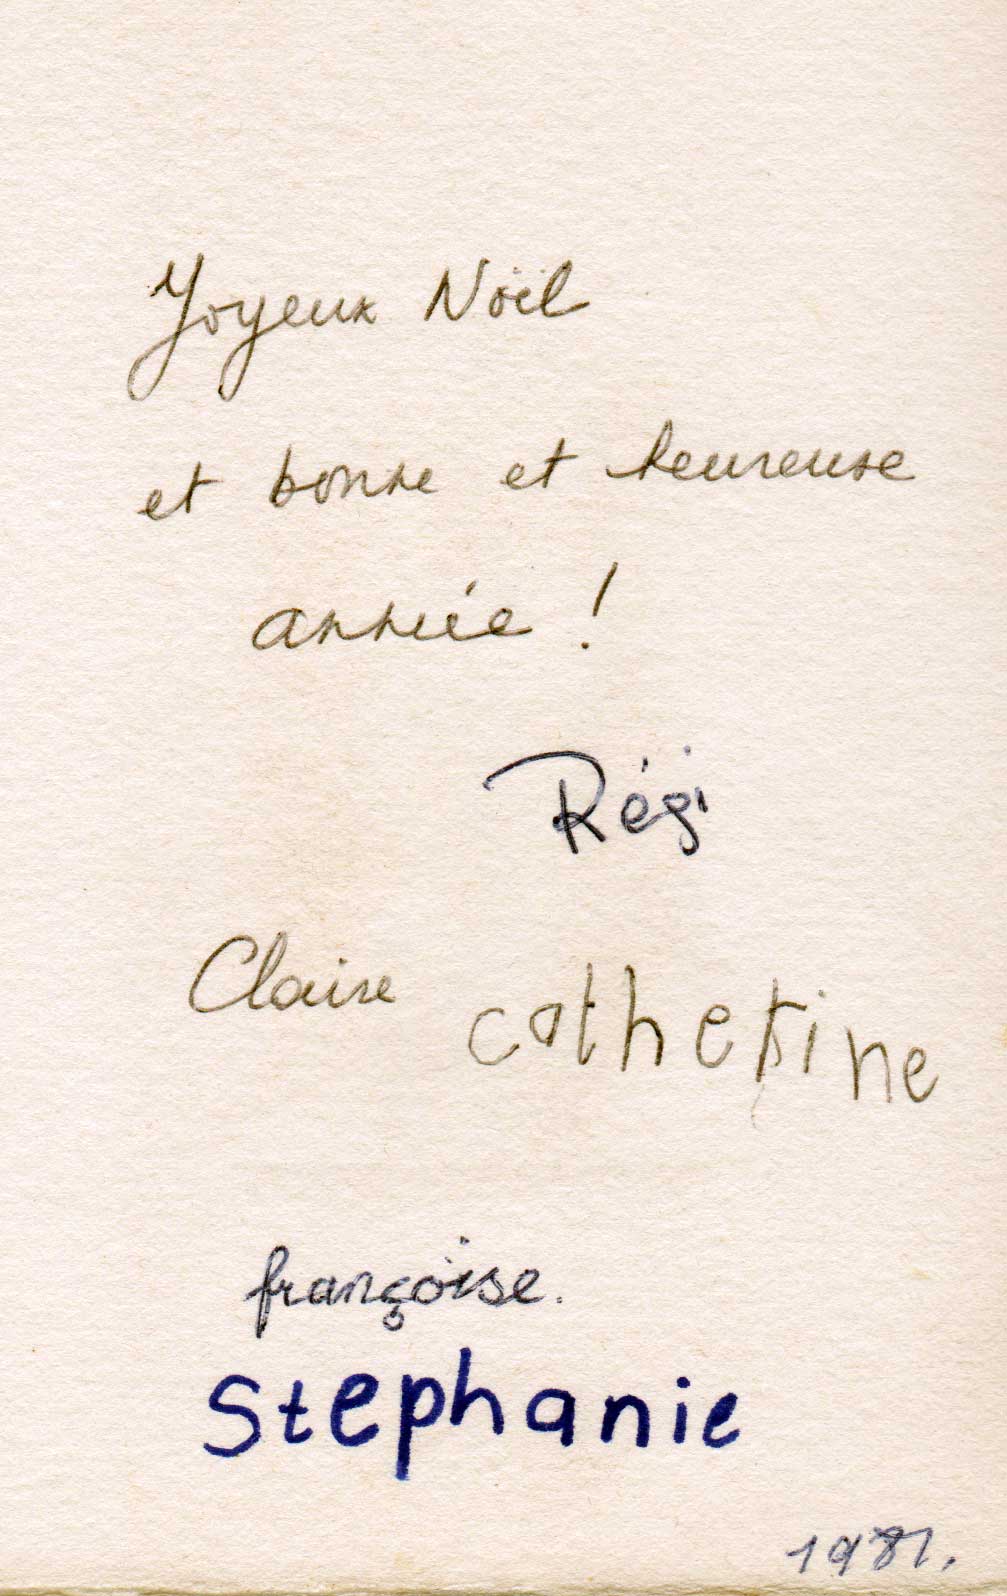 Joyeux Noël
et bonne et heureuse
année !
Régi
Claire catherine
françoise.
Stephanie
1981.